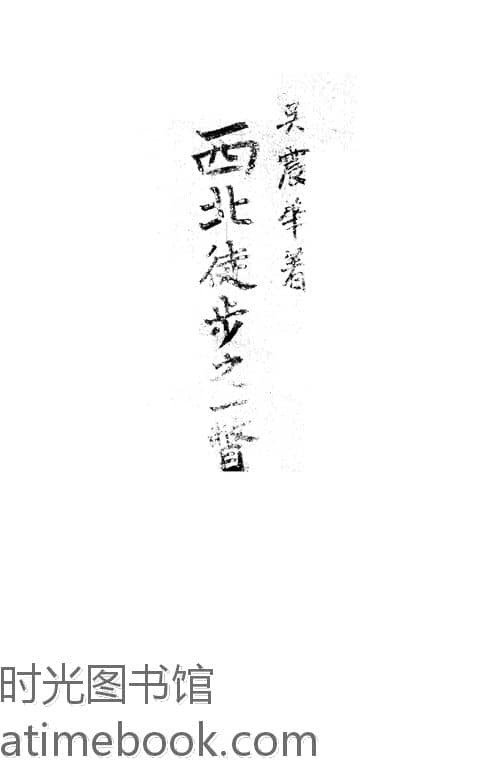 吴震华著
西北徒步之一瞥
时光图书馆
atimebook.com